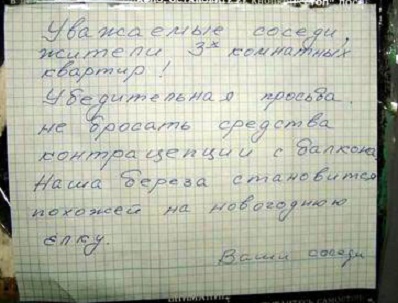 Уважаемые соседи,
жители 3х комнатных
квартир!
Убедительная просьба
не бросать средства
контрацепции с балкона.
Наша береза становится
похожей на новогоднюю
ёлку.
Ваши соседи